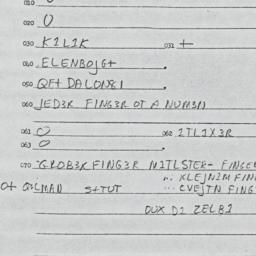 020 0
030 K1L1K 031 +
040 ELENBOJG+
050 QF+ DALONS1
060 JED3R FING3R OT A NUM3N
061 0 062 1TL1X3R
063 0
070 GROB3R FING3R M1TLST3R- FINGER
KLEJN1M FIN
+ G1LMAD S+TUT EVEJTN FING
OUX D1 ZELB1